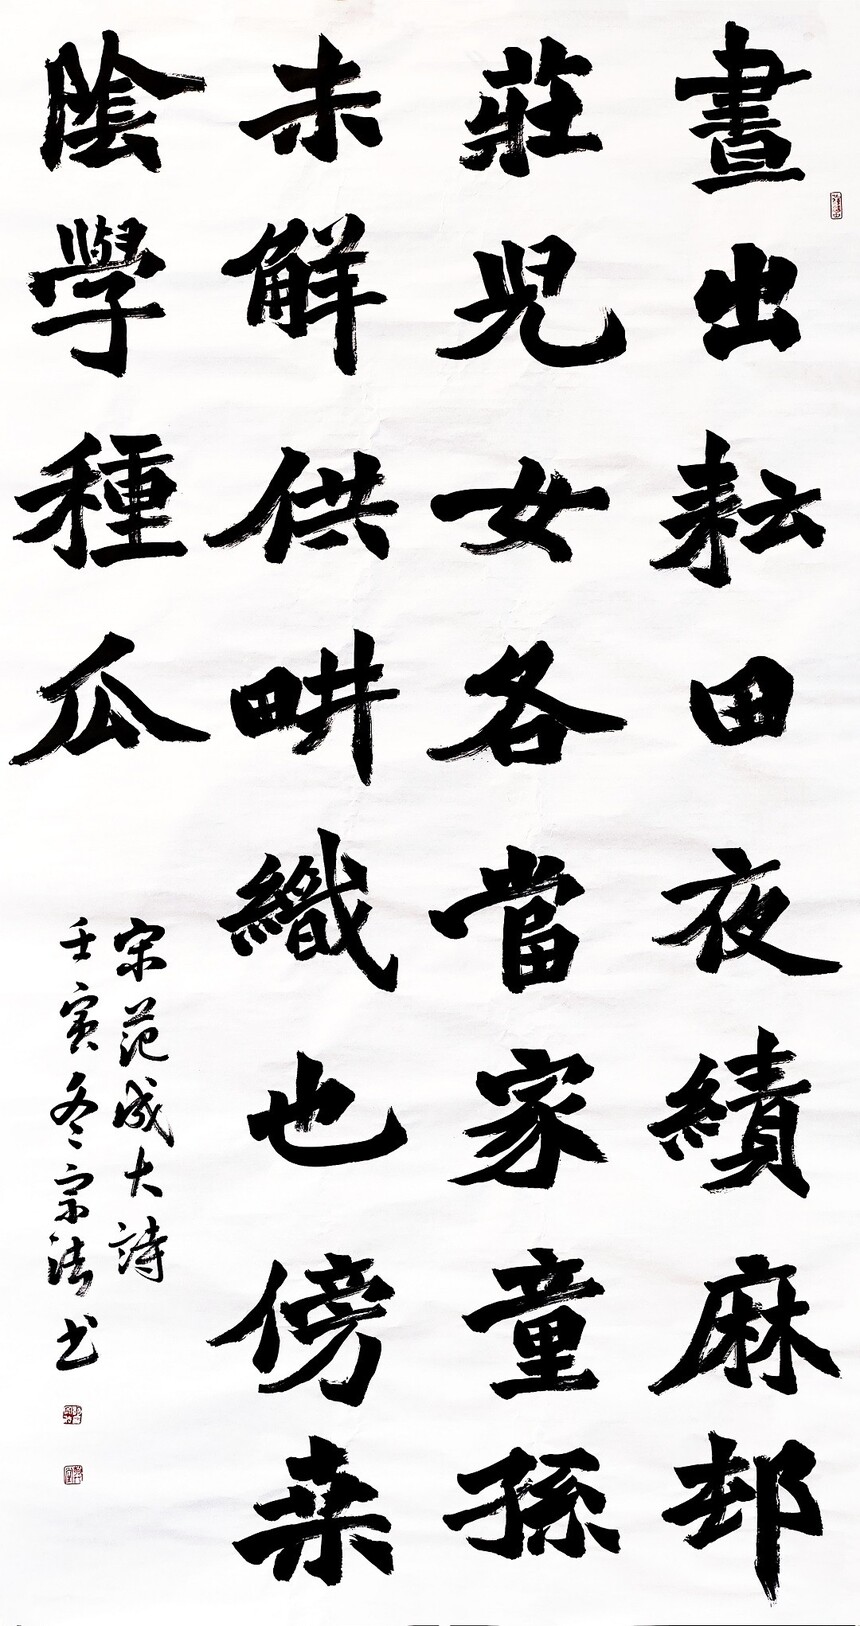 晝出耘田夜績麻邨
莊兒女各當家童孫
未解供畊織也傍桒
陰學種瓜
宋范成大詩
壬寅冬宗浩书